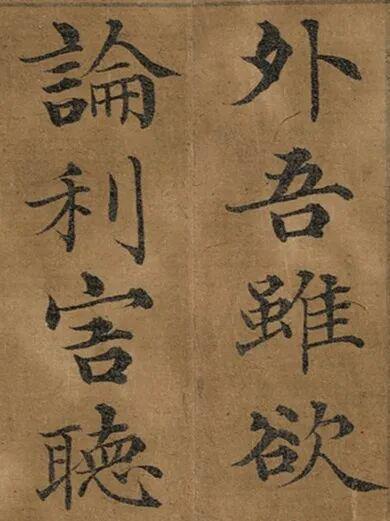 外吾雖欲
論利害聴